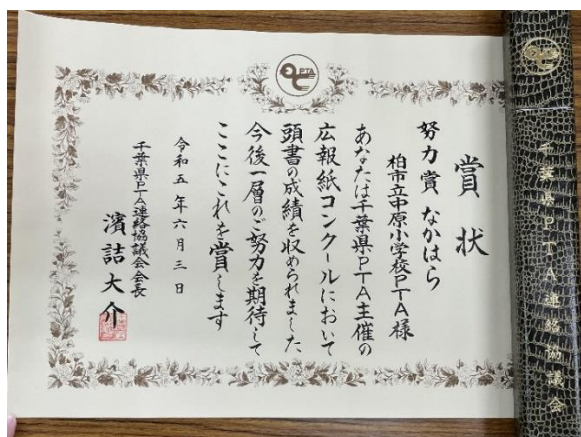 PTA
賞状
努力賞 なかはら
柏市立中原小学校PTA様
あなたは千葉県PTA主催の
広報紙コンクールにおいて
頭書の成績を収められました
今後一層のご努力を期待して
ここにこれを賞します
令和五年六月三日
千葉県PTA連絡協議会会長
濱詰大介
千葉県PTA連絡協議会